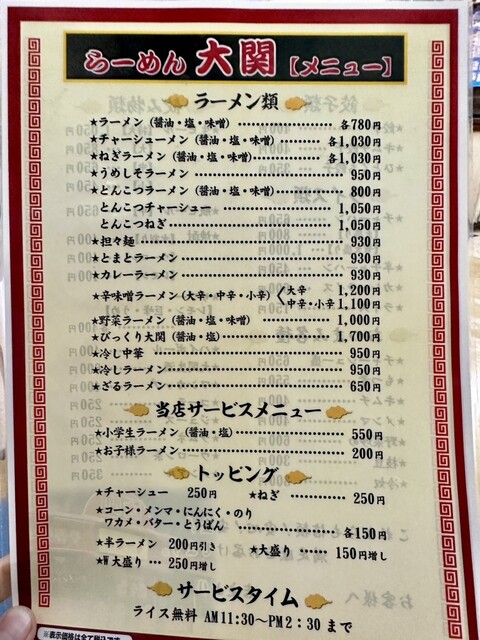 らーめん 大関 【メニュー】
ラーメン類
★ラーメン (醤油・塩・味噌) 各780円
★チャーシューメン (醤油・塩・味噌) 各1,030円
★ねぎラーメン (醤油・塩・味噌) 各1,030円
★うめしそラーメン 950円
★とんこつラーメン (醤油・塩・味噌) 800円
とんこつチャーシュー 1,050円
とんこつねぎ 1,050円
★担々麺 930円
★とまとラーメン 930円
★カレーラーメン 930円
★辛味噌ラーメン (大辛・中辛・小辛) 〈 大辛 1,200円
中辛・小辛 1,100円
★野菜ラーメン (醤油・塩・味噌) 1,000円
★びっくり大関 (醤油・塩) 1,700円
★冷し中華 950円
★冷しラーメン 950円
★ざるラーメン 650円
当店サービスメニュー
★小学生ラーメン (醤油・塩) 550円
★お子様ラーメン 200円
トッピング
★チャーシュー 250円 ★ねぎ 250円
★コーン・メンマ・にんにく・のり
ワカメ・バター・とうばん 各150円
★半ラーメン 200円引き ★大盛り 150円増し
★W大盛り 250円増し
サービスタイム
ライス無料 AM11:30〜PM2:30まで
※表示価格は全て税込です